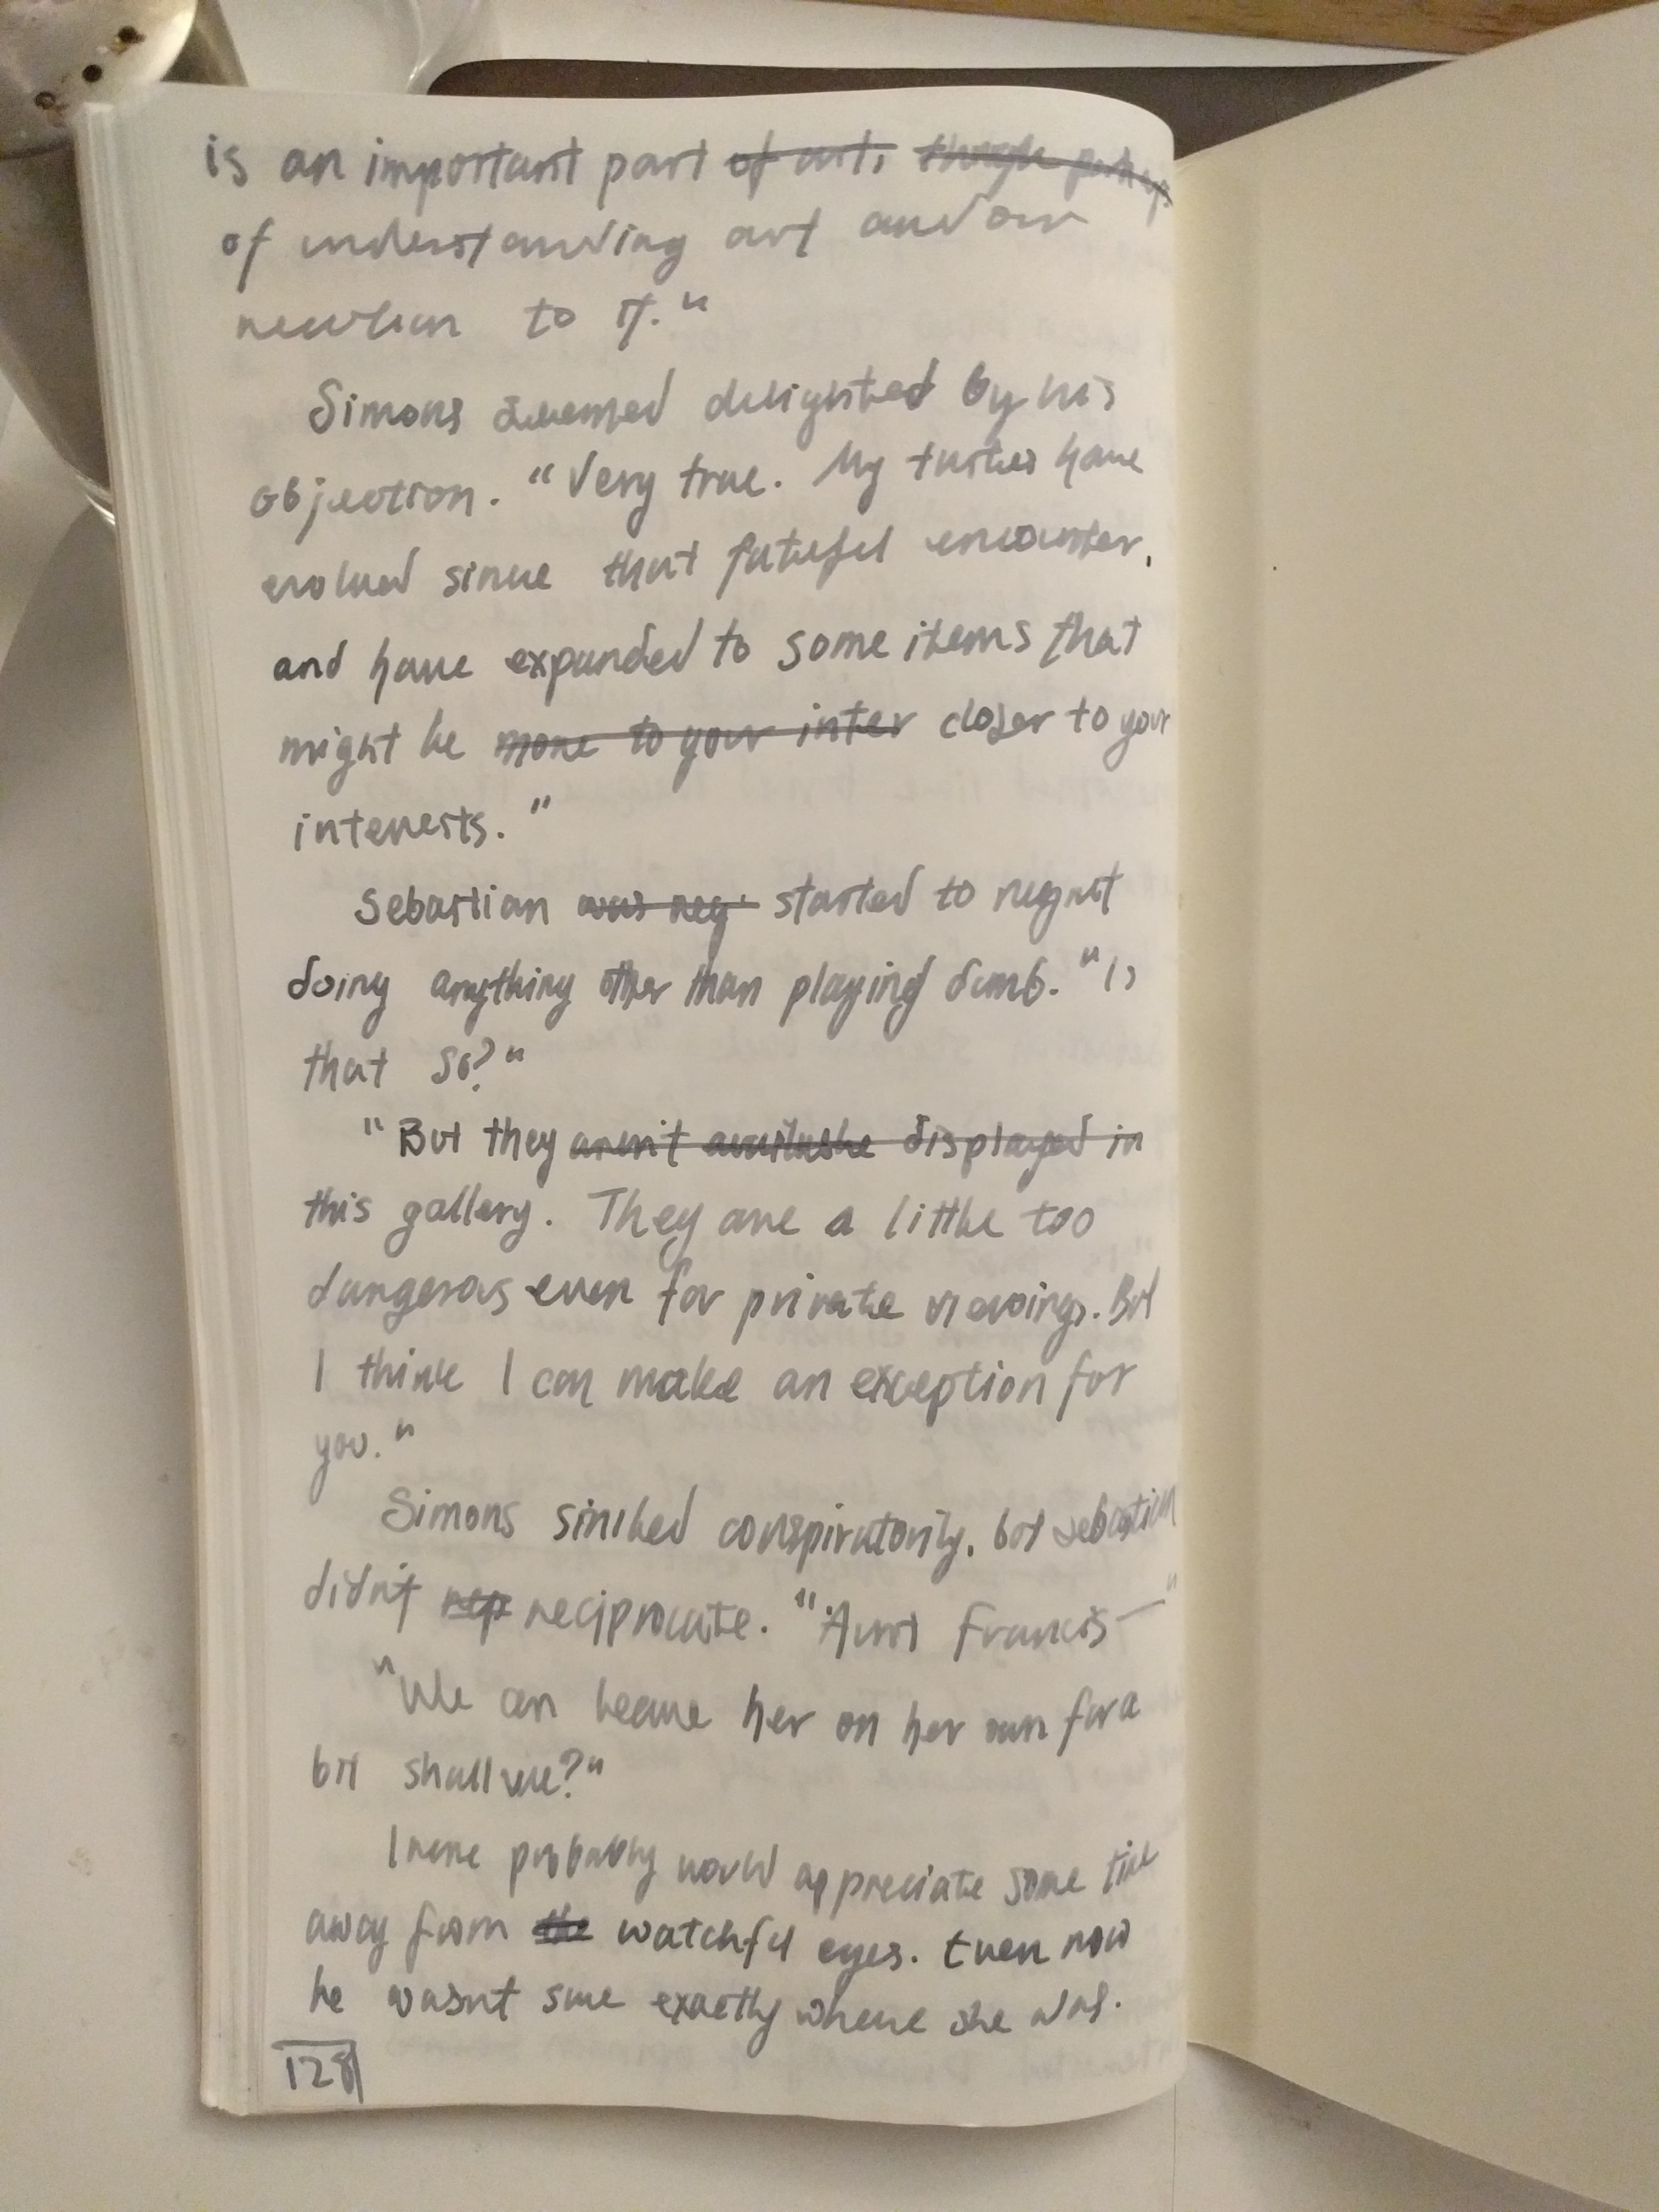 is an important part of art, though perhaps
of understanding art and our
reaction to it."
Simons seemed delighted by his
objection. "Very true. My tastes have
evolved since that fateful encounter,
and have expanded to some items that
might be more to your inter closer to your
interests."
Sebastian was reg started to regret
doing anything other than playing dumb. "Is
that so?"
"But they aren't available displayed in
this gallery. They are a little too
dangerous even for private viewings. But
I think I can make an exception for
you."
Simons smiled conspiratorily, but Sebastian
didn't rep reciprocate. "Aunt Francis—"
"We can leave her on her own for a
bit shall we?"
Irene probably would appreciate some time
away from the watchful eyes. Even now
he wasn't sure exactly where she was.
128